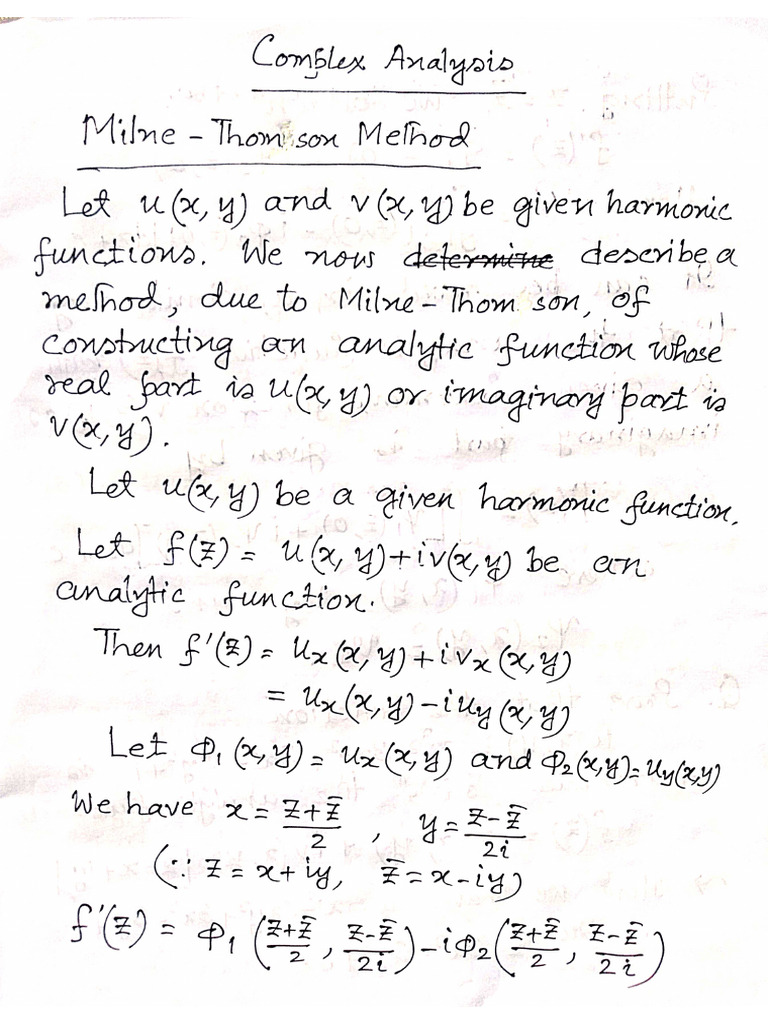 Complex Analysis
Milne-Thomson Method
Let u(x, y) and v(x, y) be given harmonic
functions. We now determine describe a
method, due to Milne-Thom son, of
constructing an analytic function whose
real part is u(x, y) or imaginary part is
v(x, y).
Let u(x, y) be a given harmonic function.
Let f(z) = u(x, y)+iv(x, y) be an
analytic function.
Then f'(z) = uₓ(x, y)+i vₓ(x, y)
= uₓ(x, y) - i u_y(x, y)
Let Φ₁(x, y) = uₓ(x, y) and Φ₂(x, y) = u_y(x, y)
We have x = (z+z̄)/2 , y = (z-z̄)/2i
(∵ z = x+iy, z̄ = x-iy)
f'(z) = Φ₁((z+z̄)/2, (z-z̄)/2i) - iΦ₂((z+z̄)/2, (z-z̄)/2i)